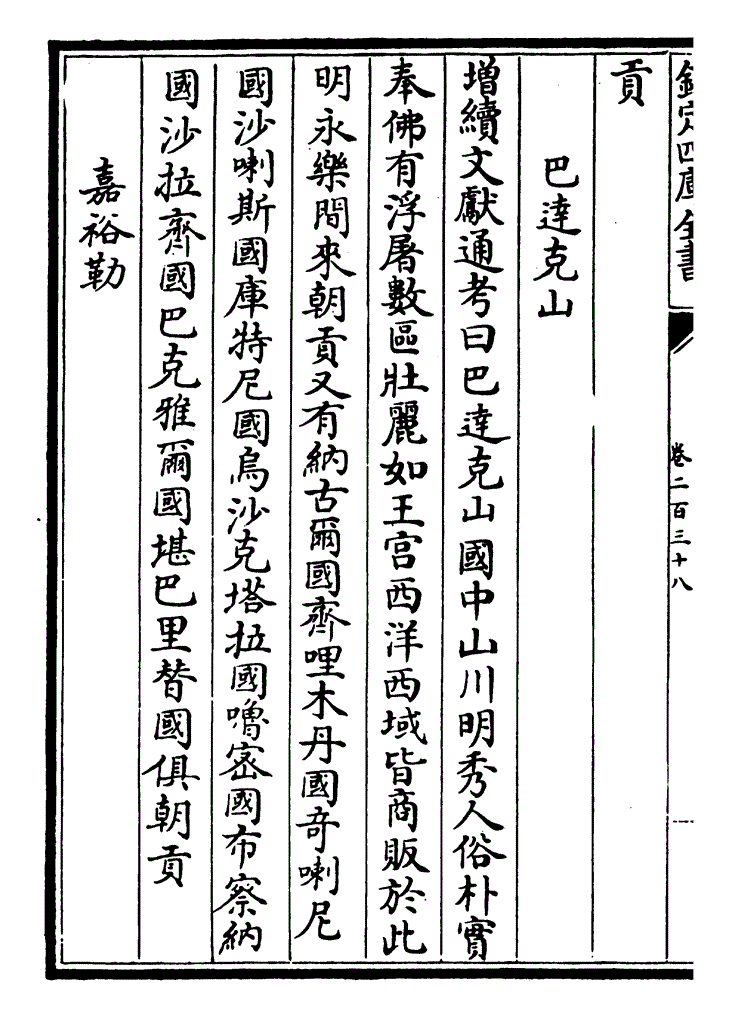 欽定四庫全書
卷二百三十八
貢
巴達克山
增續文獻通考曰巴達克山國中山川明秀人俗朴實
奉佛有浮屠數區壯麗如王宫西洋西域皆商販於此
明永樂間來朝貢又有納古爾國齊哩木丹國竒喇尼
國沙喇斯國庫特尼國烏沙克塔拉國嚕宻國布察納
國沙拉齊國巴克雅爾國堪巴里替國俱朝貢
嘉裕勒